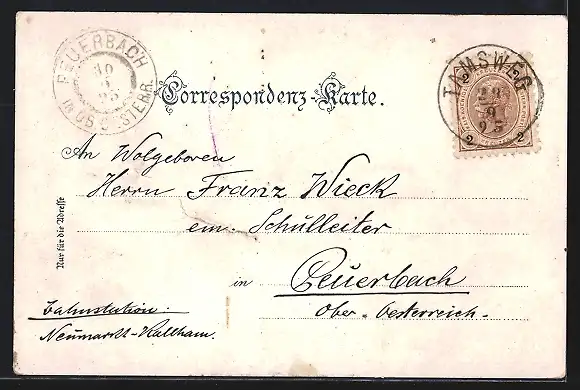 PEUERBACH
30
9
95
IN OB. ÖSTERR.
TAMSWEG
29
9
95
2 2
2 2
Correspondenz-Karte.
An Wolgeboren
Herrn Franz Wieck
em. Schulleiter
in Peuerbach
Ober-Oesterreich.
Bahnstation:
Neumarkt-Kallham.
Nur für die Adresse